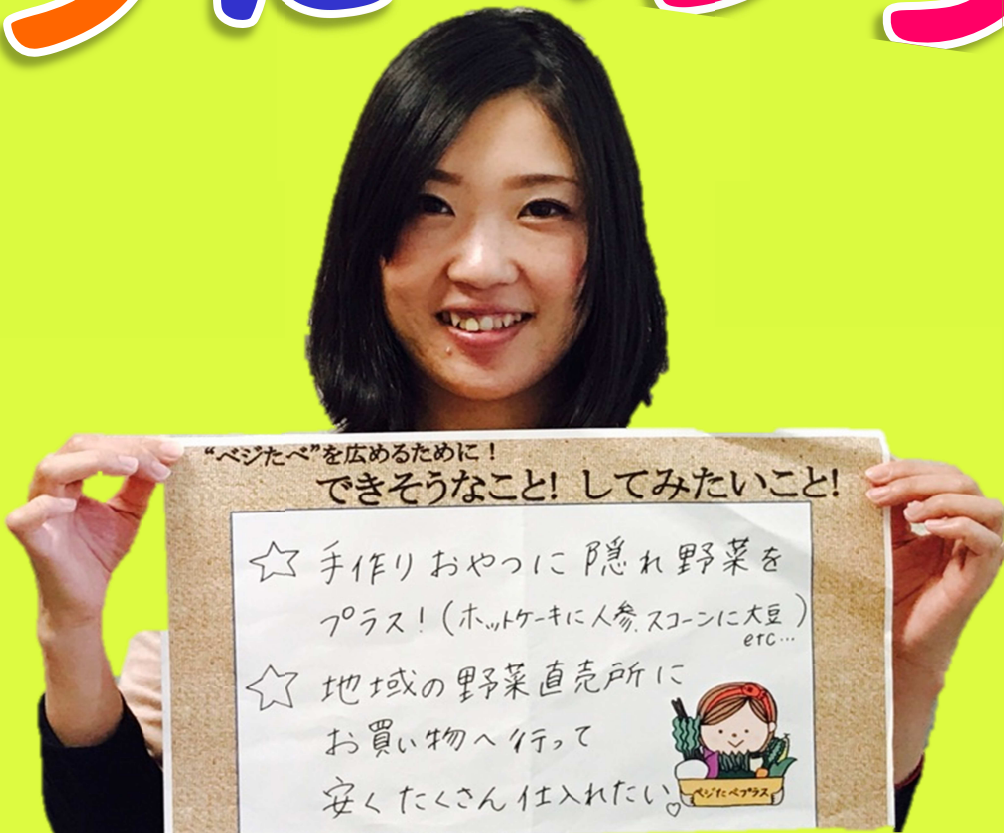 “ベジたべ”を広めるために！
できそうなこと! してみたいこと!
☆ 手作りおやつに 隠れ野菜を
プラス！(ホットケーキに人参、スコーンに大豆)
etc…
☆ 地域の野菜直売所に
お買い物へ行って
安くたくさん仕入れたい♡
ベジたべプラス